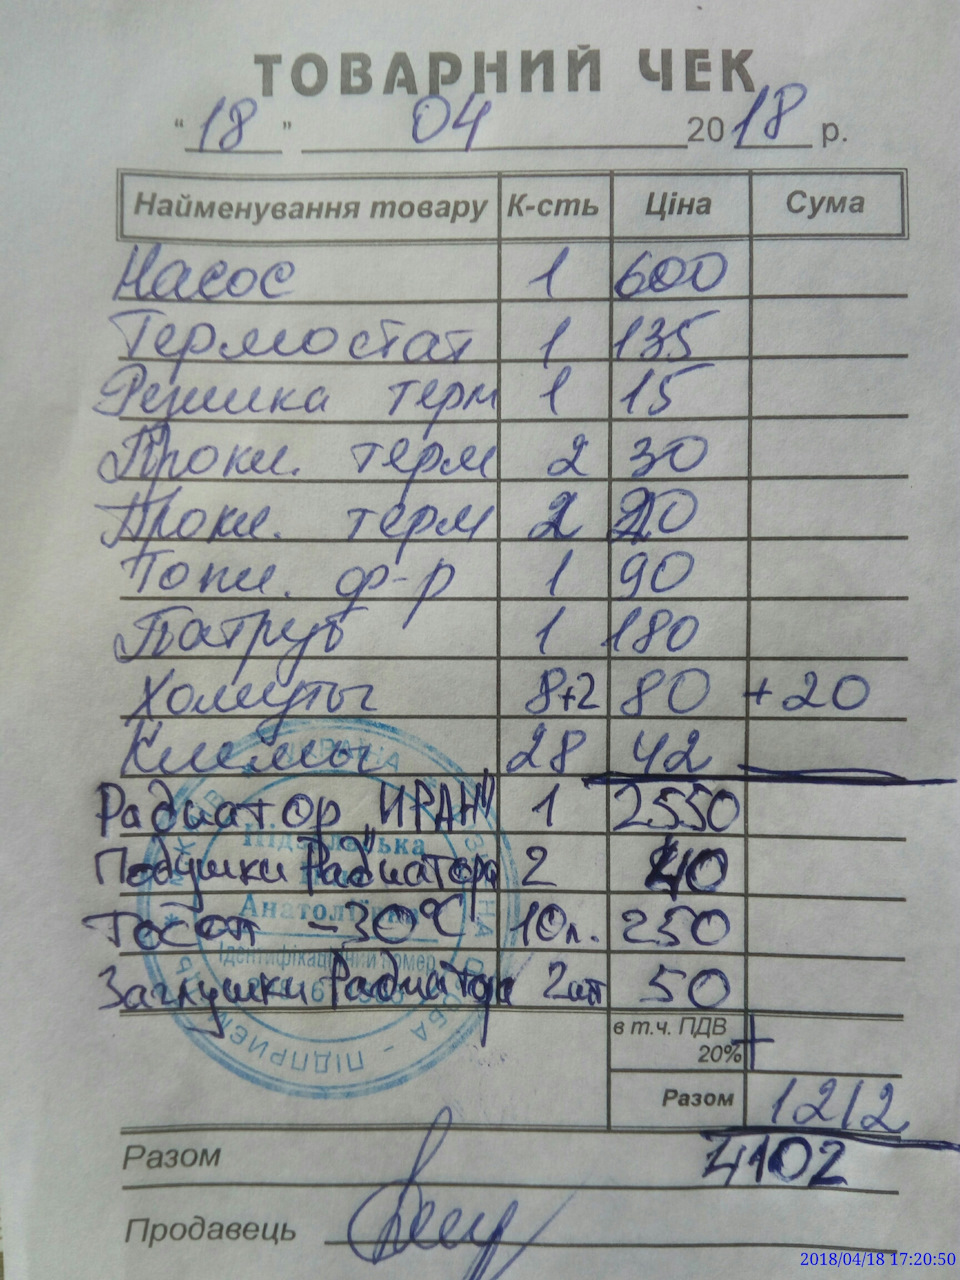 ТОВАРНИЙ ЧЕК
"18" 04 2018 р.
Найменування товару К-сть Ціна Сума
Насос 1 600
Термостат 1 135
Резинка терм 1 15
Прокл. терм 2 30
Прокл. терм 2 20
Топл. ф-р 1 90
Патруб 1 180
Хомуты 8+2 80 +20
Клеммы 28 42
Радиатор "ИРАН" 1 2550
Подушки Радиатора 2 40
Тосол -30°C 10л. 250
Заглушки Радиатора 2шт 50
в т.ч. ПДВ
20% +
Разом 1212
Разом 4102
Продавець
Анатоліївна
Ідентифікаційний номер
2018/04/18 17:20:50